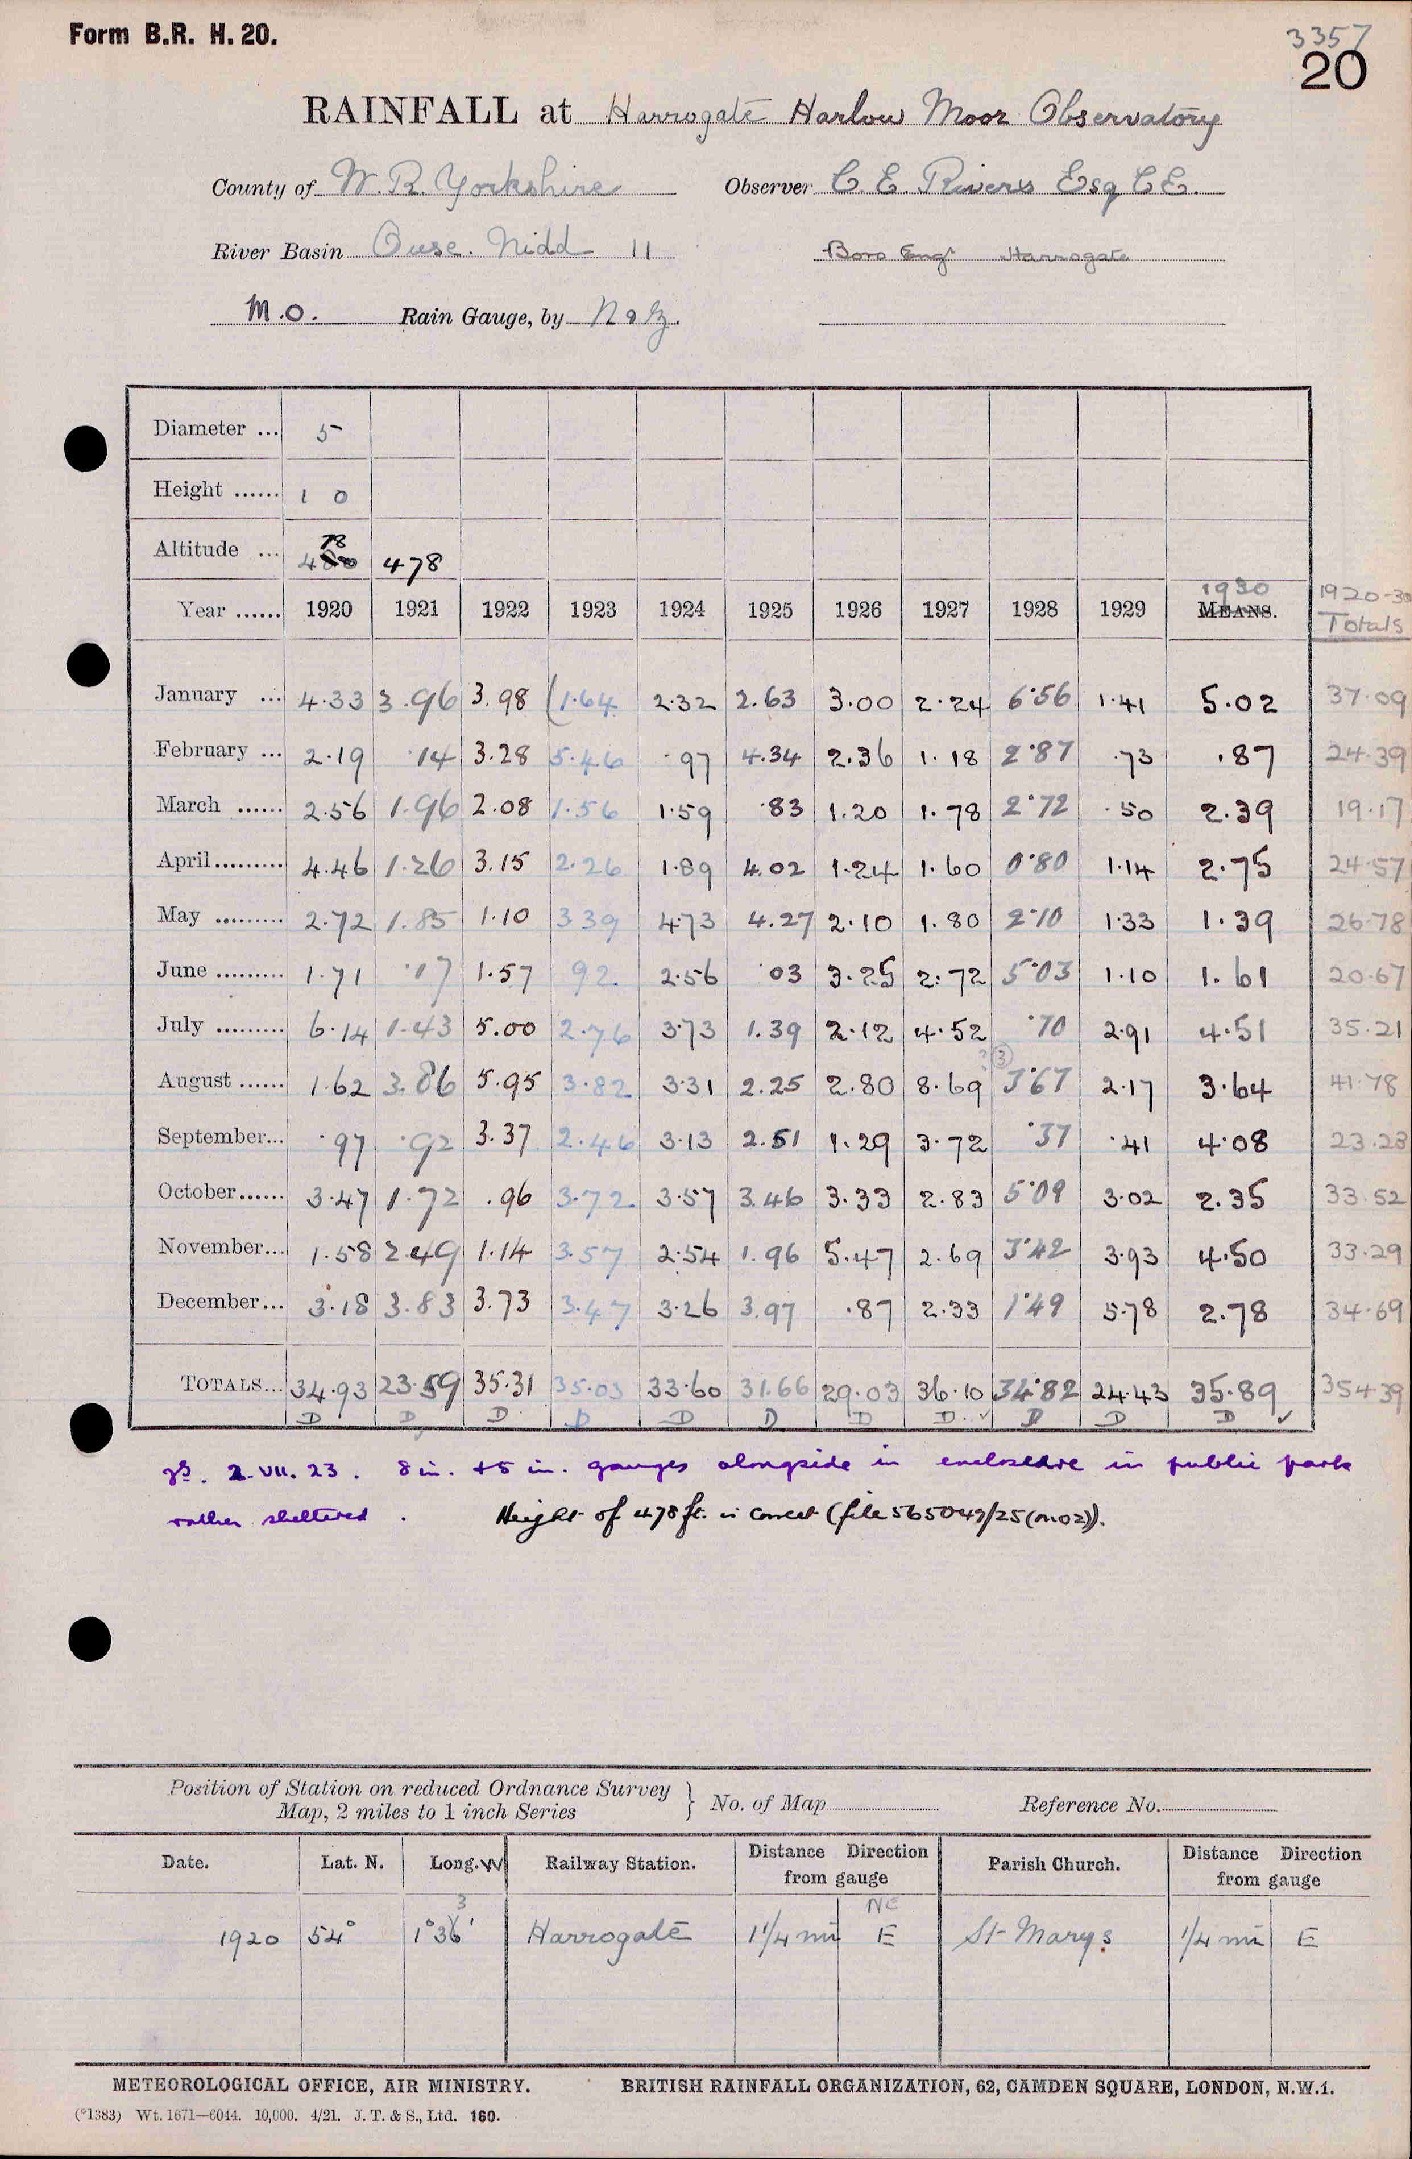 Form B.R. H. 20.
3357
20
RAINFALL at Harrogate Harlow Moor Observatory
County of W. R. Yorkshire Observer C E. Rivers Esq C E.
River Basin Ouse. Nidd 11 Boro Engr Harrogate
M.O. Rain Gauge, by N & Z.
Diameter ... 5
Height ...... 1 0
Altitude ... 480 78 478
Year ...... 1920 1921 1922 1923 1924 1925 1926 1927 1928 1929 MEANS. 1930 1920-30 Totals
January ... 4.33 3.96 3.98 (1.64 2.32 2.63 3.00 2.24 6.56 1.41 5.02 37.09
February ... 2.19 .14 3.28 5.46 .97 4.34 2.36 1.18 2.87 .73 .87 24.39
March ...... 2.56 1.96 2.08 1.56 1.59 .83 1.20 1.78 2.72 .50 2.39 19.17
April......... 4.46 1.26 3.15 2.26 1.89 4.02 1.24 1.60 0.80 1.14 2.75 24.57
May ......... 2.72 1.85 1.10 3 39 4.73 4.27 2.10 1.80 2.10 1.33 1.39 26.78
June ......... 1.71 .17 1.57 92. 2.56 .03 3.25 2.72 5.03 1.10 1.61 20.67
July ......... 6.14 1.43 5.00 2.76 3.73 1.39 2.12 4.52 .70 2.91 4.51 35.21
August ...... 1.62 3.86 5.95 3.82 3.31 2.25 2.80 8.69 3.67 2.17 3.64 41.78
September... .97 .92 3.37 2.46 3.13 2.51 1.29 3.72 .37 .41 4.08 23.23
October...... 3.47 1.72 .96 3.72 3.57 3.46 3.33 2.83 5.09 3.02 2.35 33.52
November... 1.58 2.49 1.14 3.57 2.54 1.96 5.47 2.69 3.42 3.93 4.50 33.29
December... 3.18 3.83 3.73 3.47 3.26 3.97 .87 2.33 1.49 5.78 2.78 34.69
TOTALS... 34.93 23.59 35.31 35.03 33.60 31.66 29.03 36.10 34.82 24.43 35.89 354.39
D D D D D D D D ✓ D D D ✓
2.VII.23. 8 in. + 5 in. gauges alongside in enclosure in public park
rather sheltered. Height of 478 ft. is correct (file 565049/25 (M.O.2)).
Position of Station on reduced Ordnance Survey
Map, 2 miles to 1 inch Series } No. of Map Reference No.
Date. Lat. N. Long. W Railway Station. Distance Direction from gauge Parish Church. Distance Direction from gauge
1920 54° 1° 36' 3 Harrogate 1 1/4 mi NE E St Marys 1/4 mi E
METEOROLOGICAL OFFICE, AIR MINISTRY. BRITISH RAINFALL ORGANIZATION, 62, CAMDEN SQUARE, LONDON, N.W.1.
(*1383) Wt. 1671—6044. 10,000. 4/21. J. T. & S., Ltd. 160.